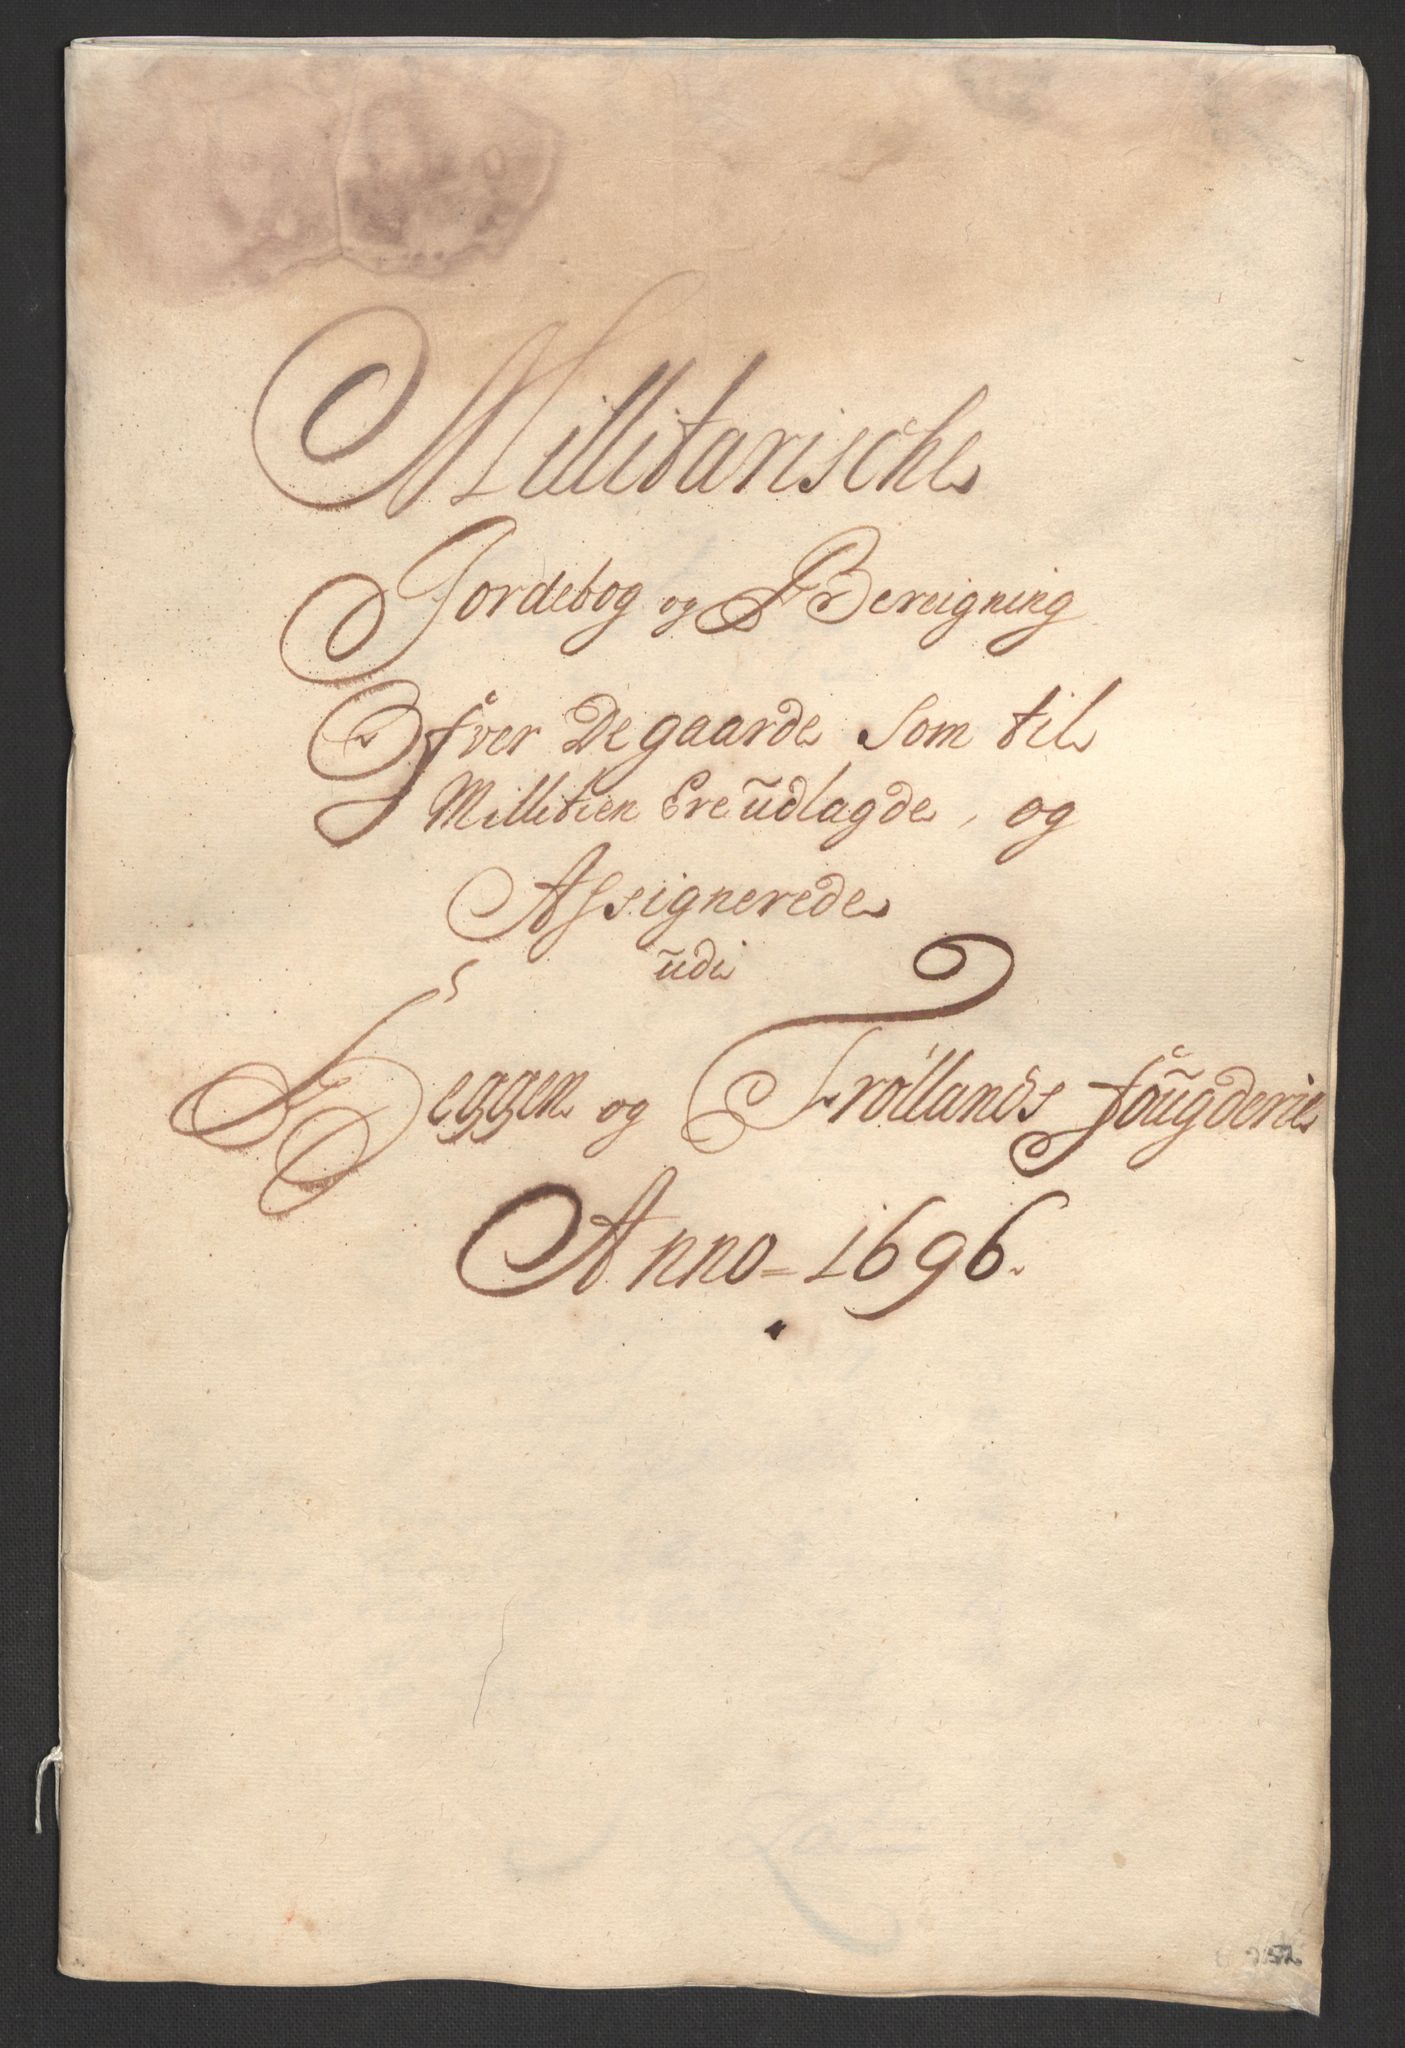 Millitarische
Jordebog og Bereigning
Ofver De gaarde som til
Millitien Ere udlagde, og
Assignerede
udi
Heggen og Fröllands fougderie
Anno = 1696.